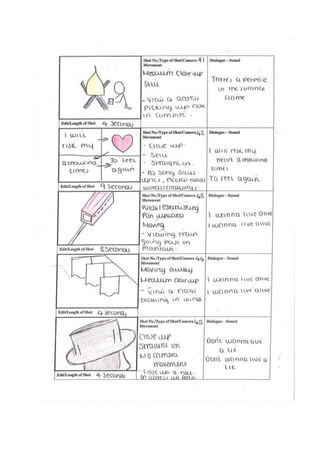 Shot No./Type of Shot/Camera 41
Movement
Dialogue – Sound
Medium close-up
Still
- View a
picking up
in campfire.
There's a purpose
in the
flame
Edit/Length of Shot 4 Seconds
Shot No./Type of Shot/Camera 42
Movement
Dialogue – Sound
I will
risk my
a thousand
times
To feel
again
- Close up
- Still
- Straight on.
- As song says
lyrics,
I will risk my
a thousand
times
To feel again.
Edit/Length of Shot 9 Seconds
Shot No./Type of Shot/Camera 43
Movement
Dialogue – Sound
Wide/Establishing
Pan upwards
Moving
- Viewing train
going past on
mountain.
I wanna live alive
I wanna live alive
Edit/Length of Shot 8 Seconds
Shot No./Type of Shot/Camera 44
Movement
Dialogue – Sound
Moving away
Medium close up
- View a
blowing in wind
I wanna live alive
I wanna live alive
Edit/Length of Shot 4 Seconds
Shot No./Type of Shot/Camera 45
Movement
Dialogue – Sound
Close up
Straight on
No camera
movement
Close up a hat
Dont wanna live
a lie
Dont wanna live a
lie
Edit/Length of Shot 4 Seconds